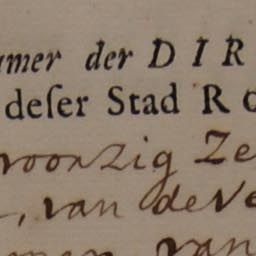 amer der DIR
deſer Stad R
voorzig Ze
, van de Ve
van